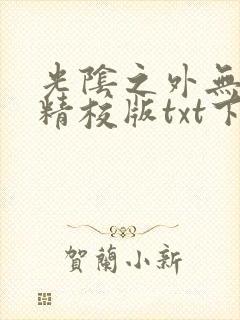 光陰之外無
精校版txt下
賀蘭小新